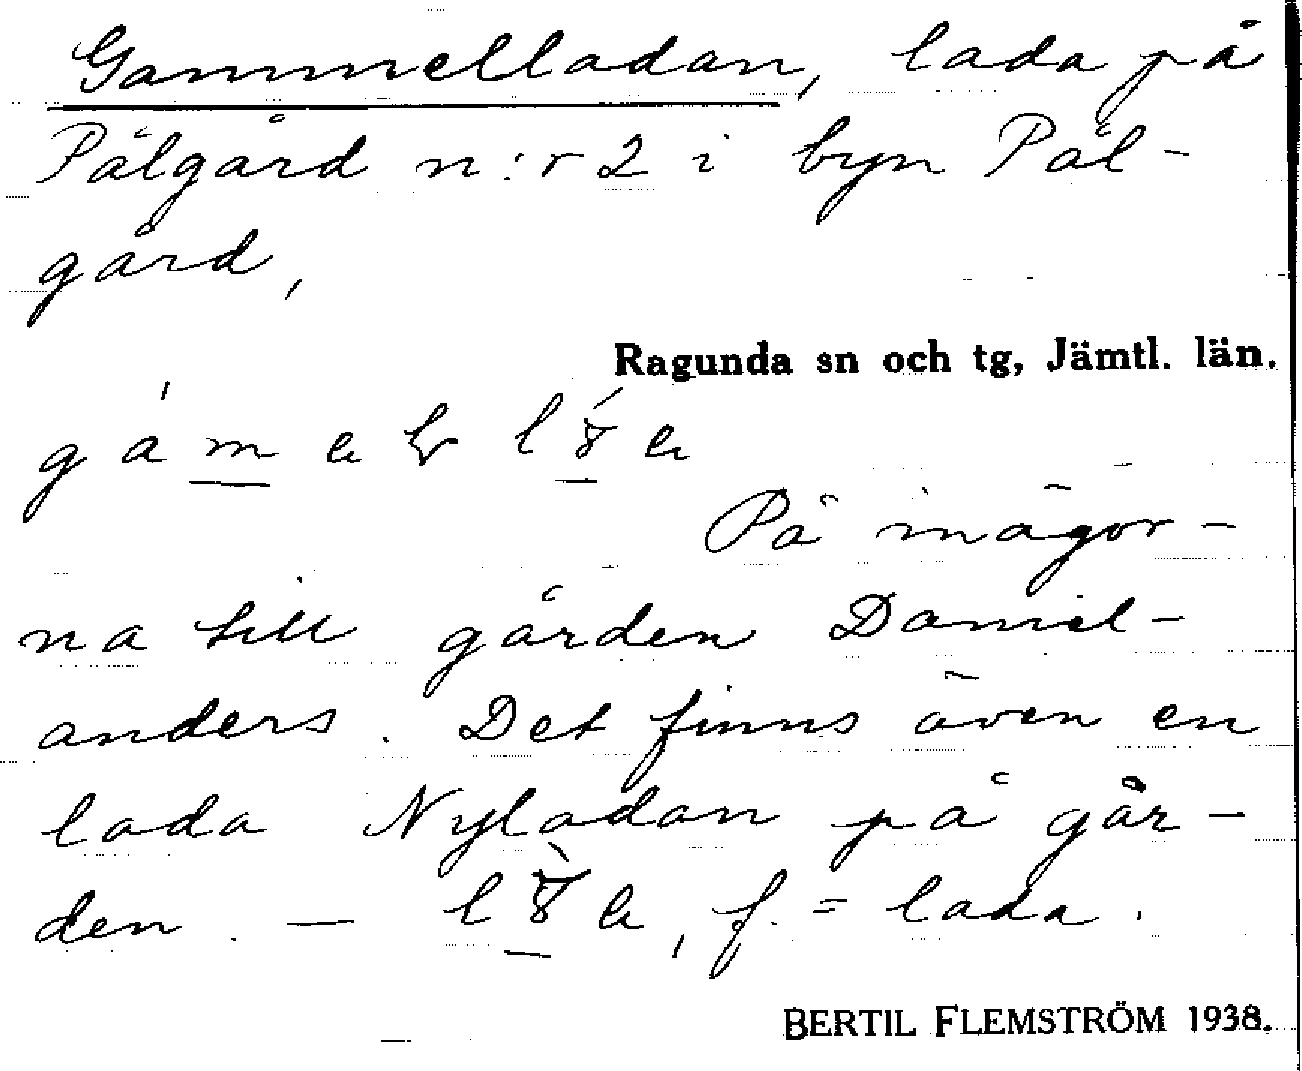 Gammelladan, lada på
Pålgård n:r 2 i byn Pål-
gård,
Ragunda sn och tg, Jämtl. län.
På inägor-
na till gården Daniel-
anders. Det finns även en
lada Nyladan på går-
den. — f. = lada.
BERTIL FLEMSTRÖM 1938.